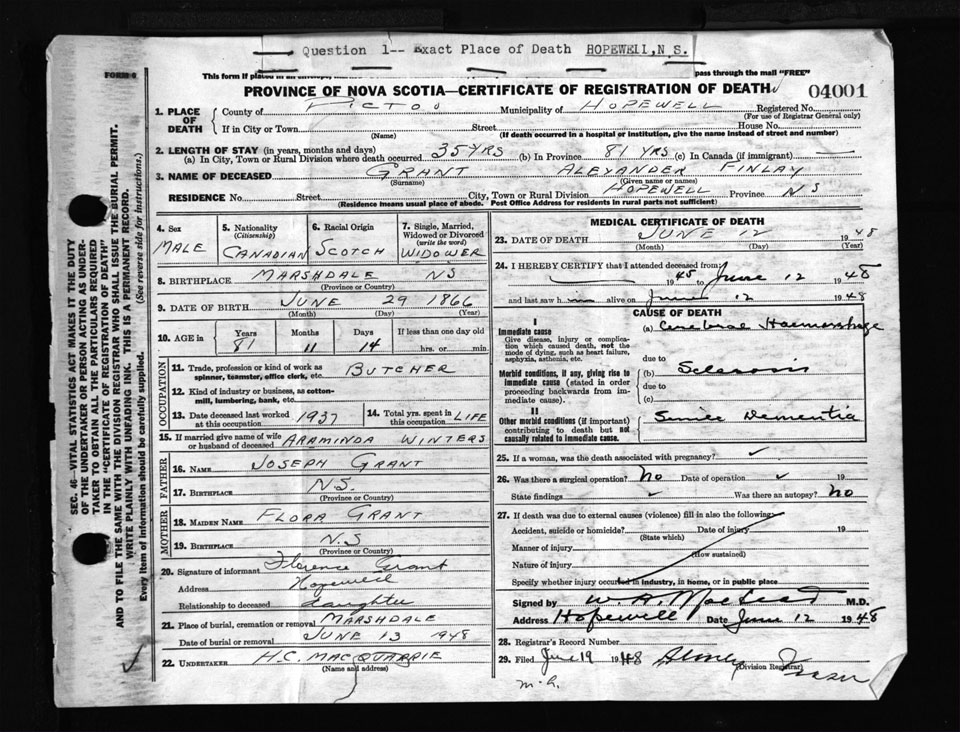 Question 1-- Exact Place of Death HOPEWELL, N S.
FORM 6
This form if placed in an envelope, pass through the mail "FREE"
PROVINCE OF NOVA SCOTIA—CERTIFICATE OF REGISTRATION OF DEATH 04001
1. PLACE OF DEATH
County of PICTOU Municipality of HOPEWELL Registered No.
(For use of Registrar General only)
If in City or Town Street House No.
(Name) (If death occurred in a hospital or institution, give the name instead of street and number)
2. LENGTH OF STAY (in years, months and days)
(a) In City, Town or Rural Division where death occurred 35 YRS (b) In Province 81 YRS (c) In Canada (if immigrant) —
3. NAME OF DECEASED GRANT ALEXANDER FINLAY
(Surname) (Given name or names)
RESIDENCE No. Street City, Town or Rural Division HOPEWELL Province N S
(Residence means usual place of abode. Post Office Address for residents in rural parts not sufficient)
4. Sex
MALE
5. Nationality
(Citizenship)
CANADIAN
6. Racial Origin
SCOTCH
7. Single, Married, Widowed or Divorced
(write the word)
WIDOWER
8. BIRTHPLACE MARSHDALE NS
(Province or Country)
9. DATE OF BIRTH JUNE 29 1866
(Month) (Day) (Year)
10. AGE in Years Months Days If less than one day old
81 11 14 hrs. or min.
OCCUPATION
11. Trade, profession or kind of work as spinner, teamster, office clerk, etc. BUTCHER
12. Kind of industry or business, as cotton-mill, lumbering, bank, etc.
13. Date deceased last worked at this occupation 1937
14. Total yrs. spent in this occupation LIFE
15. If married give name of wife or husband of deceased ARAMINDA WINTERS
FATHER
16. NAME JOSEPH GRANT
17. BIRTHPLACE N.S.
(Province or Country)
MOTHER
18. MAIDEN NAME FLORA GRANT
19. BIRTHPLACE N.S
(Province or Country)
20. Signature of informant Florence Grant
Address Hopewell
Relationship to deceased daughter
21. Place of burial, cremation or removal MARSHDALE
Date of burial or removal JUNE 13 1948
22. UNDERTAKER H.C. MACQUARRIE
(Name and address)
MEDICAL CERTIFICATE OF DEATH
23. DATE OF DEATH JUNE 12 1948
(Month) (Day) (Year)
24. I HEREBY CERTIFY that I attended deceased from:
1945 to June 12 1948
and last saw him alive on June 12 1948
CAUSE OF DEATH
I
Immediate cause (a) Cerebral Haemorrhage
Give disease, injury or complication which caused death, not the mode of dying, such as heart failure, asphyxia, asthenia, etc.
due to
Morbid conditions, if any, giving rise to immediate cause (stated in order proceeding backwards from immediate cause).
(b) Sclerosis
due to
(c)
II
Other morbid conditions (if important) contributing to death but not causally related to immediate cause.
Senile Dementia
25. If a woman, was the death associated with pregnancy? ✓
26. Was there a surgical operation? No Date of operation ✓ 19
State findings ✓ Was there an autopsy? No
27. If death was due to external causes (violence) fill in also the following:
Accident, suicide or homicide? Date of injury 19
(State which)
Manner of injury
(How sustained)
Nature of injury
Specify whether injury occurred in industry, in home, or in public place
Signed by W. A. MacLeod M.D.
Address Hopewell Date June 12 1948
28. Registrar's Record Number
29. Filed June 19 1948
(Division Registrar)
SEC. 46—VITAL STATISTICS ACT MAKES IT THE DUTY
OF THE UNDERTAKER OR PERSON ACTING AS UNDER-
TAKER TO OBTAIN ALL THE PARTICULARS REQUIRED
IN THE "CERTIFICATE OF REGISTRATION OF DEATH"
AND TO FILE THE SAME WITH THE DIVISION REGISTRAR WHO SHALL ISSUE THE BURIAL PERMIT.
WRITE PLAINLY WITH UNFADING INK. THIS IS A PERMANENT RECORD.
Every item of information should be carefully supplied. (See reverse side for instructions.)